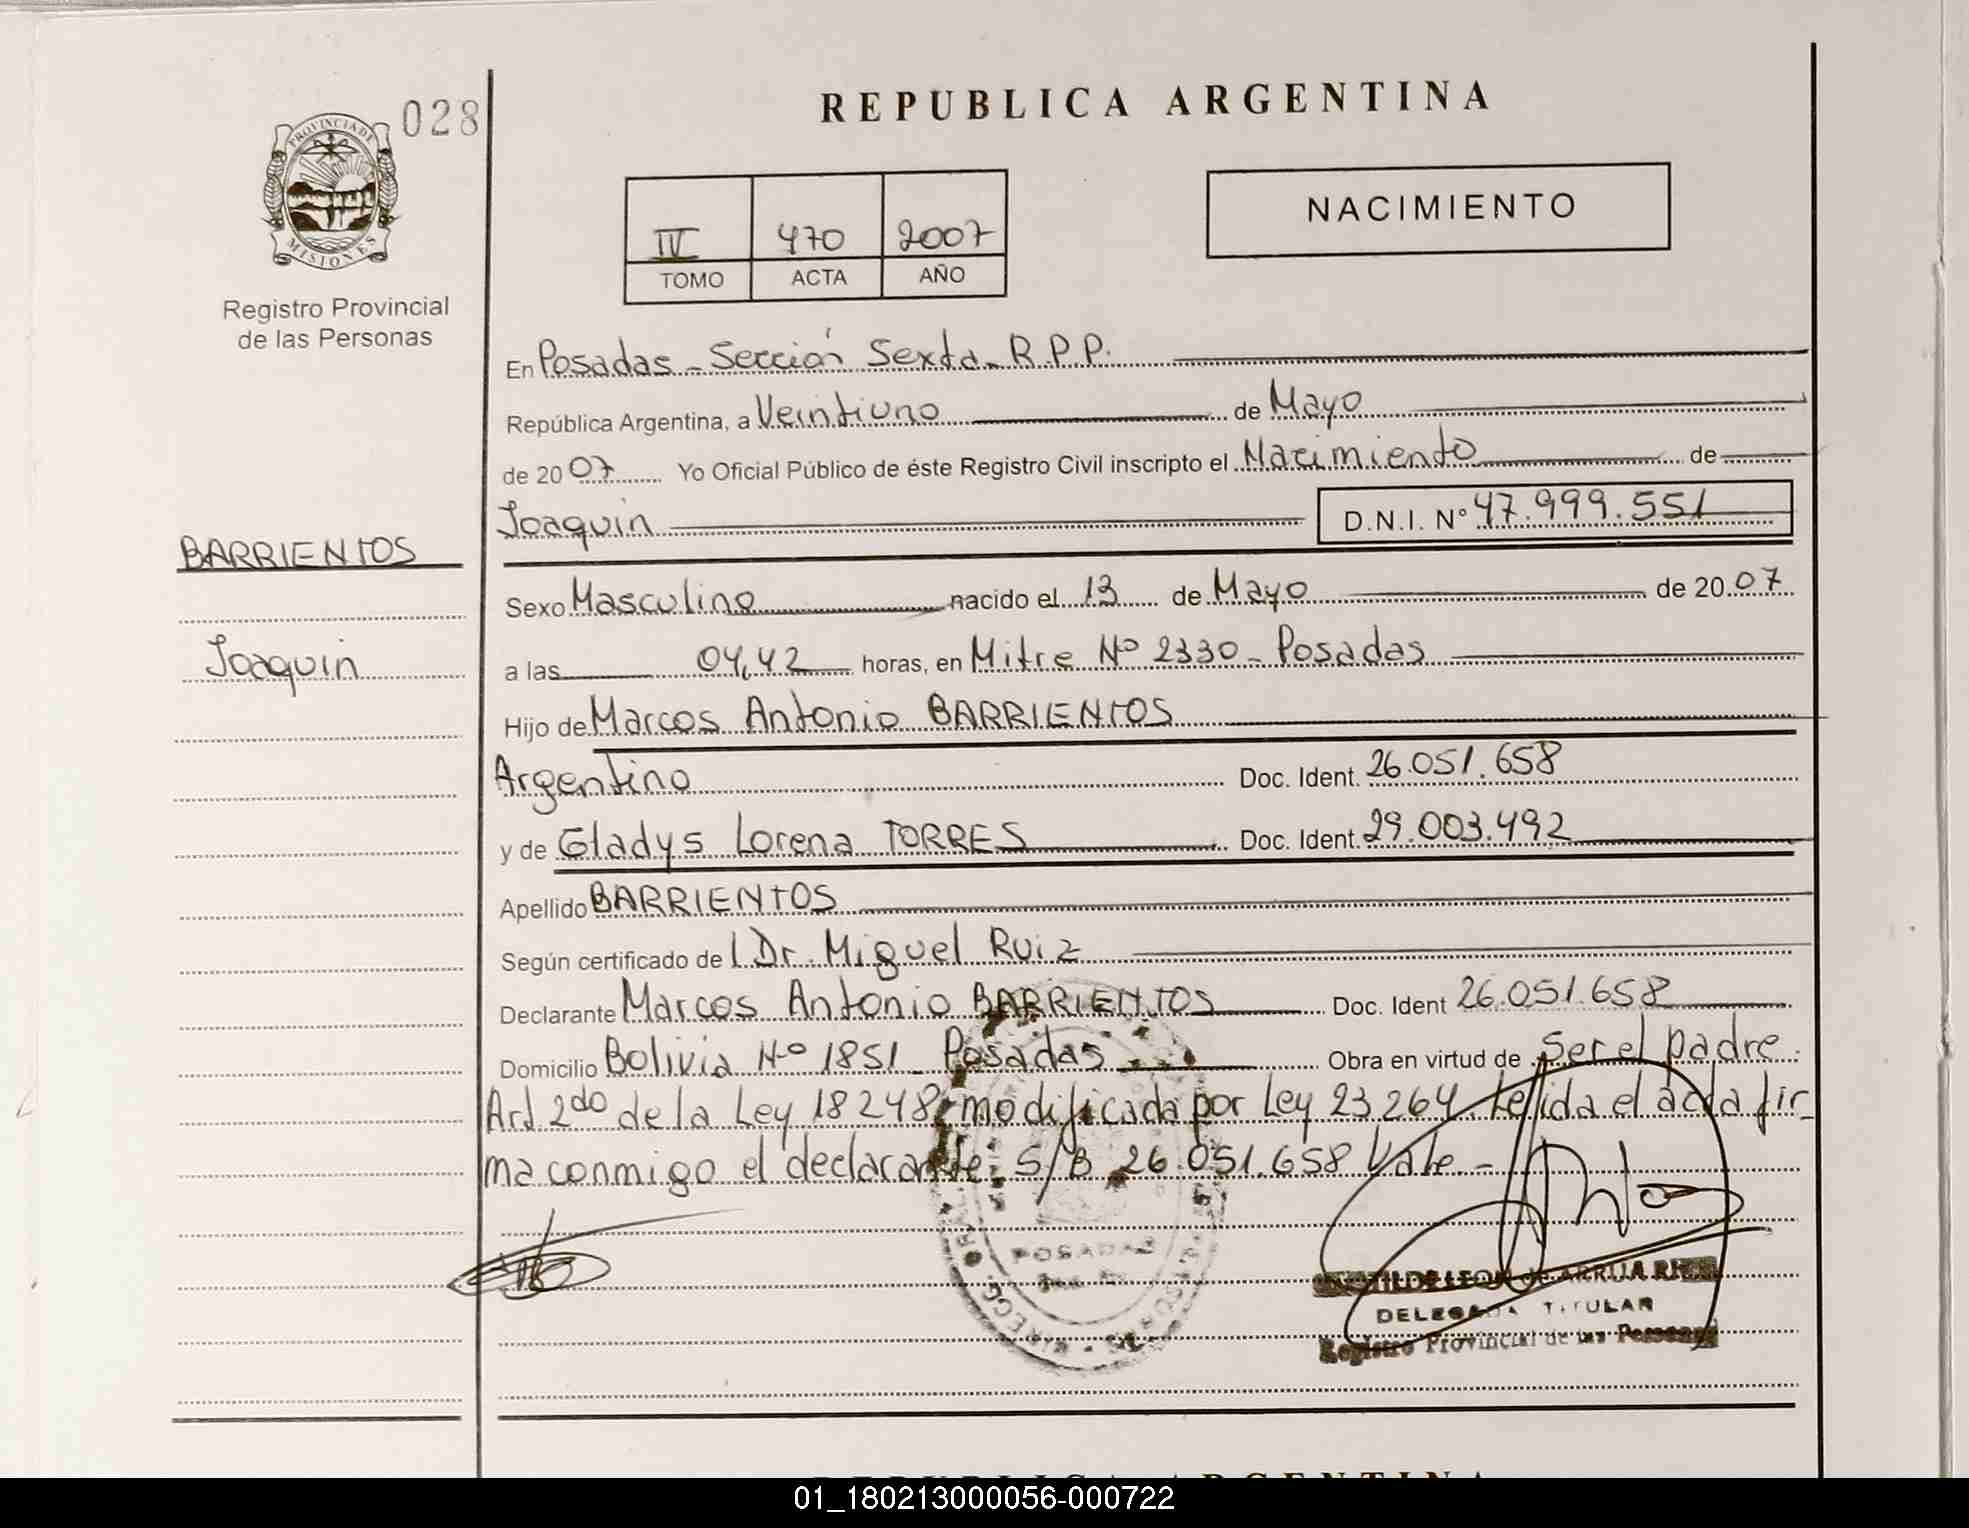 028
PROVINCIA DE
MISIONES
Registro Provincial
de las Personas
REPUBLICA ARGENTINA
IV 470 2007
TOMO ACTA AÑO
NACIMIENTO
En Posadas - Sección Sexta - R.P.P.
República Argentina, a Veintiuno de Mayo
de 2007 Yo Oficial Público de éste Registro Civil inscripto el Nacimiento de
Joaquin D.N.I. Nº 47.999.551
BARRIENTOS
Sexo Masculino nacido el 13 de Mayo de 2007
Joaquin
a las 04,42 horas, en Mitre Nº 2330 - Posadas
Hijo de Marcos Antonio BARRIENTOS
Argentino Doc. Ident. 26.051.658
y de Gladys Lorena TORRES Doc. Ident. 29.003.492
Apellido BARRIENTOS
Según certificado de l Dr. Miguel Ruiz
Declarante Marcos Antonio BARRIENTOS Doc. Ident 26.051.658
Domicilio Bolivia Nº 1851 - Posadas Obra en virtud de Ser el padre.
Art 2do de la Ley 18248 modificada por Ley 23264. Leída el acta fir-
ma conmigo el declarante. S/B 26.051.658 Vale -
POSADAS
DE ARRUA
DELEGADA TITULAR
Registro Provincial de las Personas
REPUBLICA ARGENTINA
01_180213000056-000722